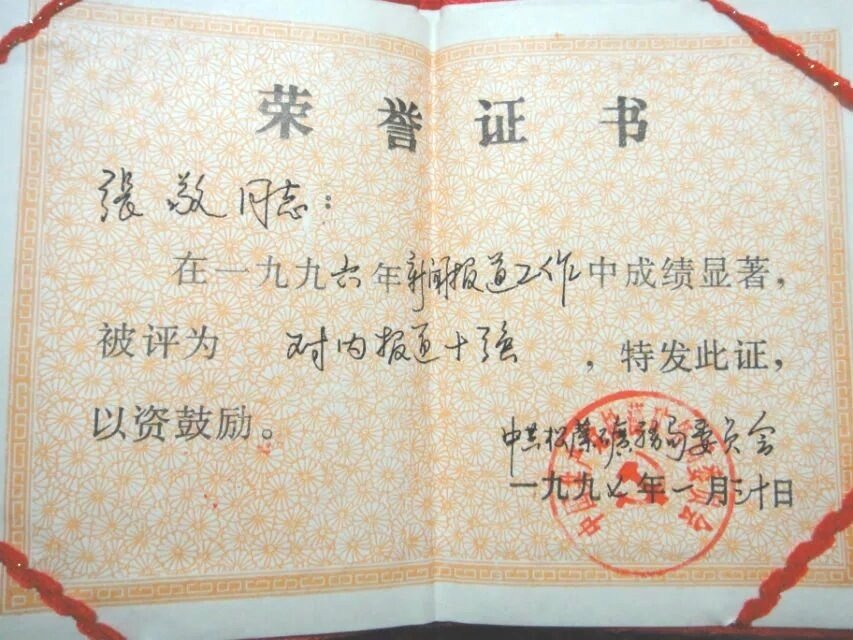 荣誉证书
張敬同志：
在一九九六年新闻报道工作中成绩显著，
被评为 对内报道十强 ，特发此证，
以资鼓励。
中共松藻矿务局委员会
一九九七年一月三十日